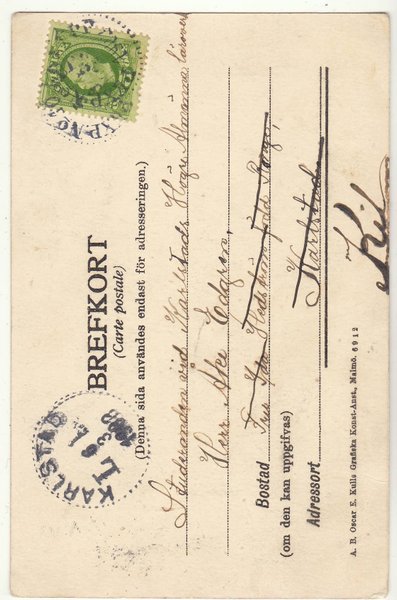 BREFKORT
(Carte postale)
(Denna sida användes endast för adresseringen.)
Studeranden vid Karlstads Högre Allmänna läroverk
Herr Åke Edgren,
Bostad Fru
(om den kan uppgifvas)
Adressort Karlstad
Kil
A. B. Oscar E. Kulls Grafiska Konst-Anst., Malmö. 6912
KARLSTAD